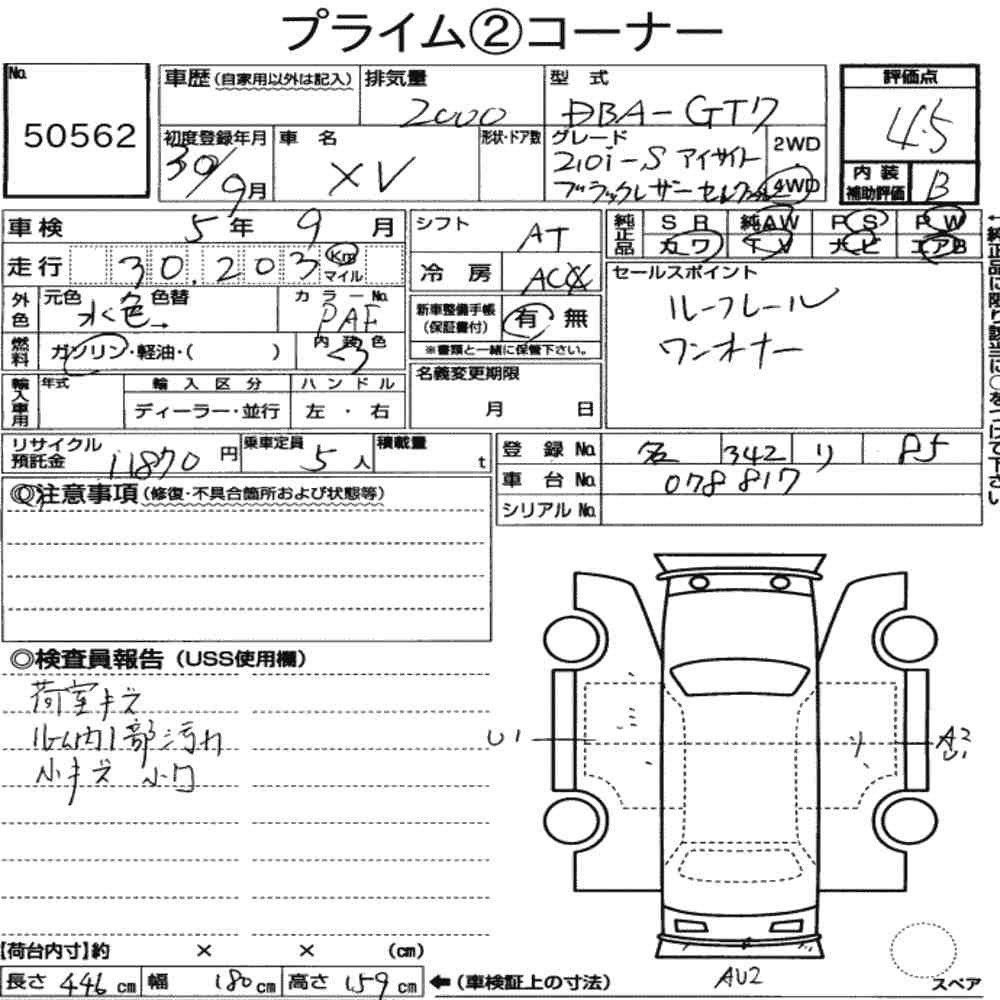 プライム②コーナー
No.
50562
車歴(自家用以外は記入)
排気量
2000
型式
DBA-GT7
評価点
4.5
初度登録年月
30/9月
車名
XV
形状・ドア数
グレード
2.0i-S アイサイト
ブラックレザーセレクション
2WD
4WD
内装補助評価
B
車検
5年 9月
シフト
AT
純正品
SR 純AW PS PW
カワ TV ナビ エアB
走行
30,203
Km マイル
冷房
AC
セールスポイント
ルーフレール
ワンオーナー
外色
元色
水色
色替
カラーNo.
PAF
新車整備手帳(保証書付)
有 無
※書類と一緒に保管下さい。
燃料
ガソリン・軽油・( )
内装色
輸入車用
年式
輸入区分
ハンドル
ディーラー・並行
左・右
名義変更期限
月 日
←純正品に限り該当に○をつけて下さい
リサイクル預託金
11870円
乗車定員
5人
積載量
t
登録No.
名 342 リ 85
車台No.
078817
シリアルNo.
◎注意事項(修復・不具合箇所および状態等)
◎検査員報告(USS使用欄)
荷室キズ
ルーム内1部汚れ
小キズ 小凹
U1
A2
U1
AU2
【荷台内寸】約 × × (cm)
長さ 446cm 幅 180cm 高さ 159cm ←(車検証上の寸法)
スペア